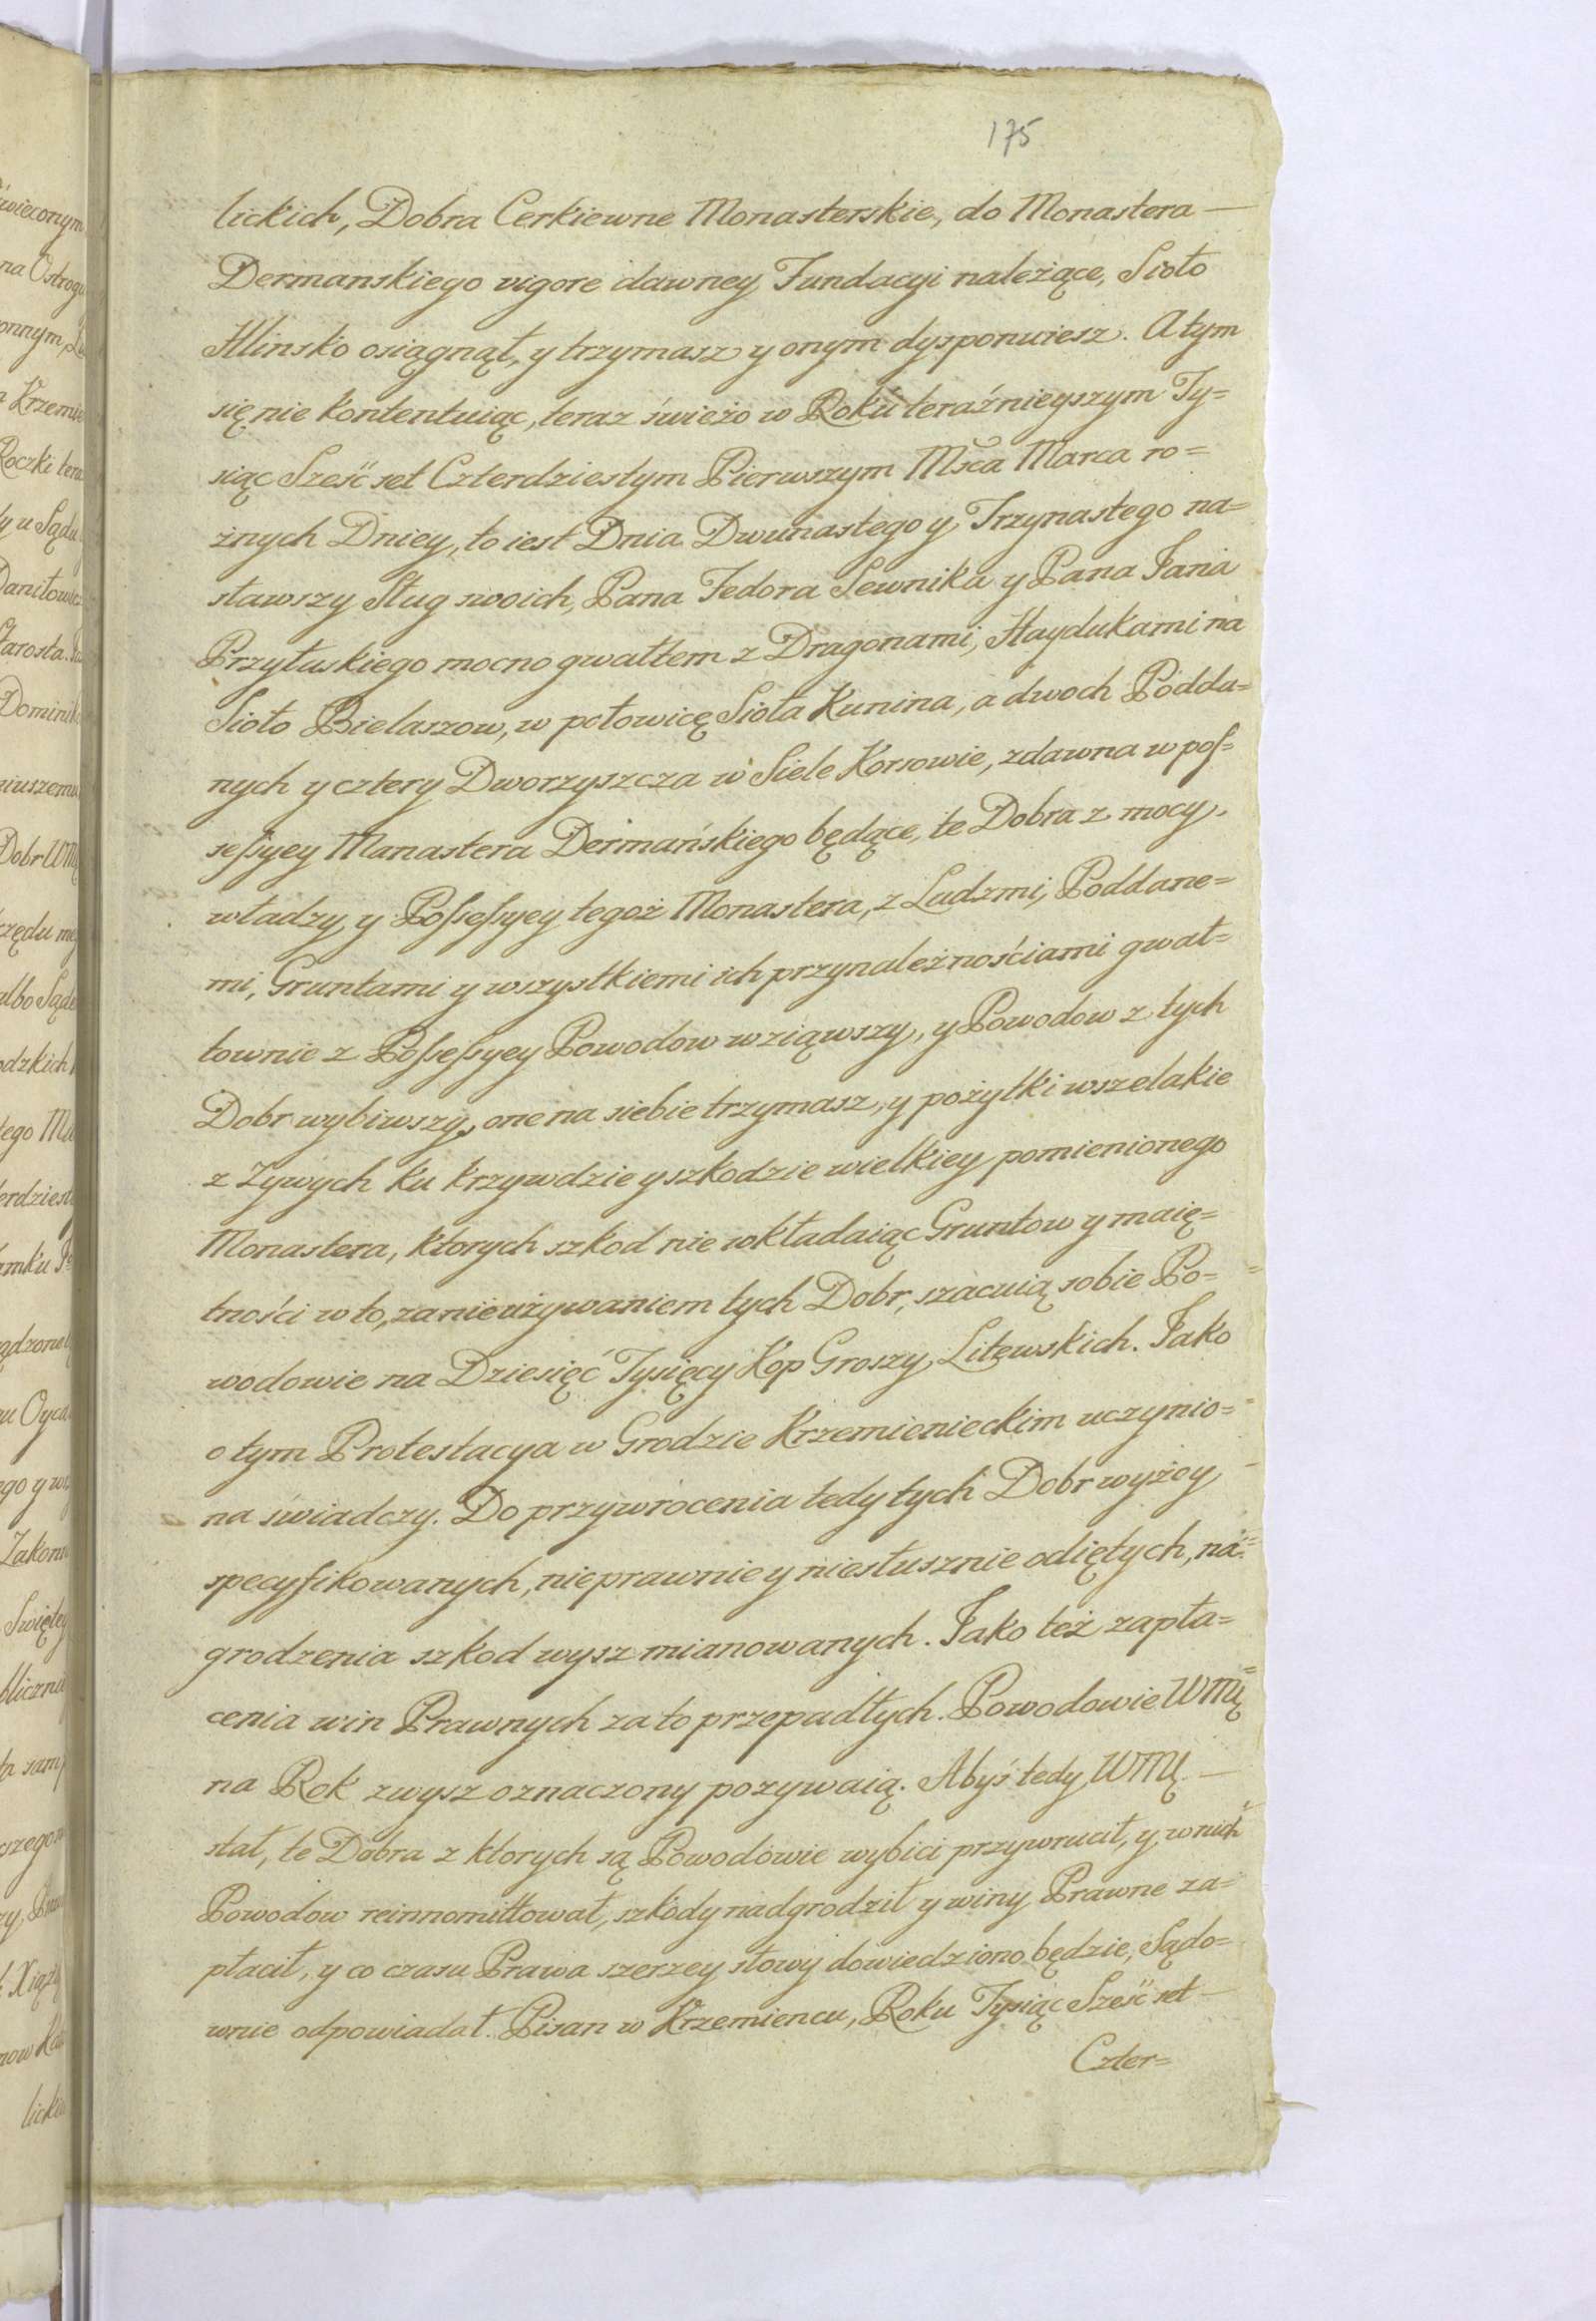 175
lickich, Dobra Cerkiewne Monasterskie, do Monastera —
Dermanskiego vigore dawney Fundacyi należące, Sioło
Hlinsko osiągnął, y trzymasz y onym dysponuiesz. A tym
się nie kontentuiąc, teraz świeżo w Roku teraźnieyszym Ty=
siąc Sześćset Czterdziestym Pierwszym Msca Marca ro=
żnych Dniey, to iest Dnia Dwunastego y Trzynastego na=
sławszy Sług swoich, Pana Fedora Sewnika y Pana Jana
Przyłuskiego mocno gwałtem z Dragonami, Haydukami na
Sioło Bielaszow, w połowicę Sioła Kunina, a dwoch Podda=
nych y cztery Dworzyszcza w Siele Korsowie, zdawna w pos=
sessyey Manastera Dermańskiego będące, te Dobra z mocy,
władzy y Possessyey tegoż Monastera, z Ludzmi, Poddane=
mi, Gruntami y wszystkiemi ich przynależnościami gwał=
townie z Possessyey Powodow wziąwszy, y Powodow z tych
Dobr wybiwszy, one na siebie trzymasz, y pożytki wszelakie
z Zywych ku krzywdzie y szkodzie wielkiey pomienionego
Monastera, ktorych szkod nie wkładaiąc Gruntow y maię=
tności w to, za nieużywaniem tych Dobr, szacuią sobie Po=
wodowie na Dziesięć Tysięcy Kop Groszy Litewskich. Jako
o tym Protestacya w Grodzie Krzemienieckim uczynio=
na świadczy. Do przywrocenia tedy tych Dobr wyżey
specyfikowanych, nieprawnie y niesłusznie odiętych, na=
grodzenia szkod wysz mianowanych. Jako też zapła=
cenia win Prawnych za to przepadłych. Powodowie WMę
na Rok zwysz oznaczony pozywaią. Abyś tedy WMę —
stał, te Dobra z ktorych są Powodowie wybici przywrucił, y w nich
Powodow reinnomittował, szkody nadgrodził y winy Prawne za=
płacił, y co czasu Prawa szerzey słowy dowiedziono będzie, Sądo=
wnie odpowiadał. Pisan w Krzemiencu, Roku Tysiąc Sześćset —
Czter=